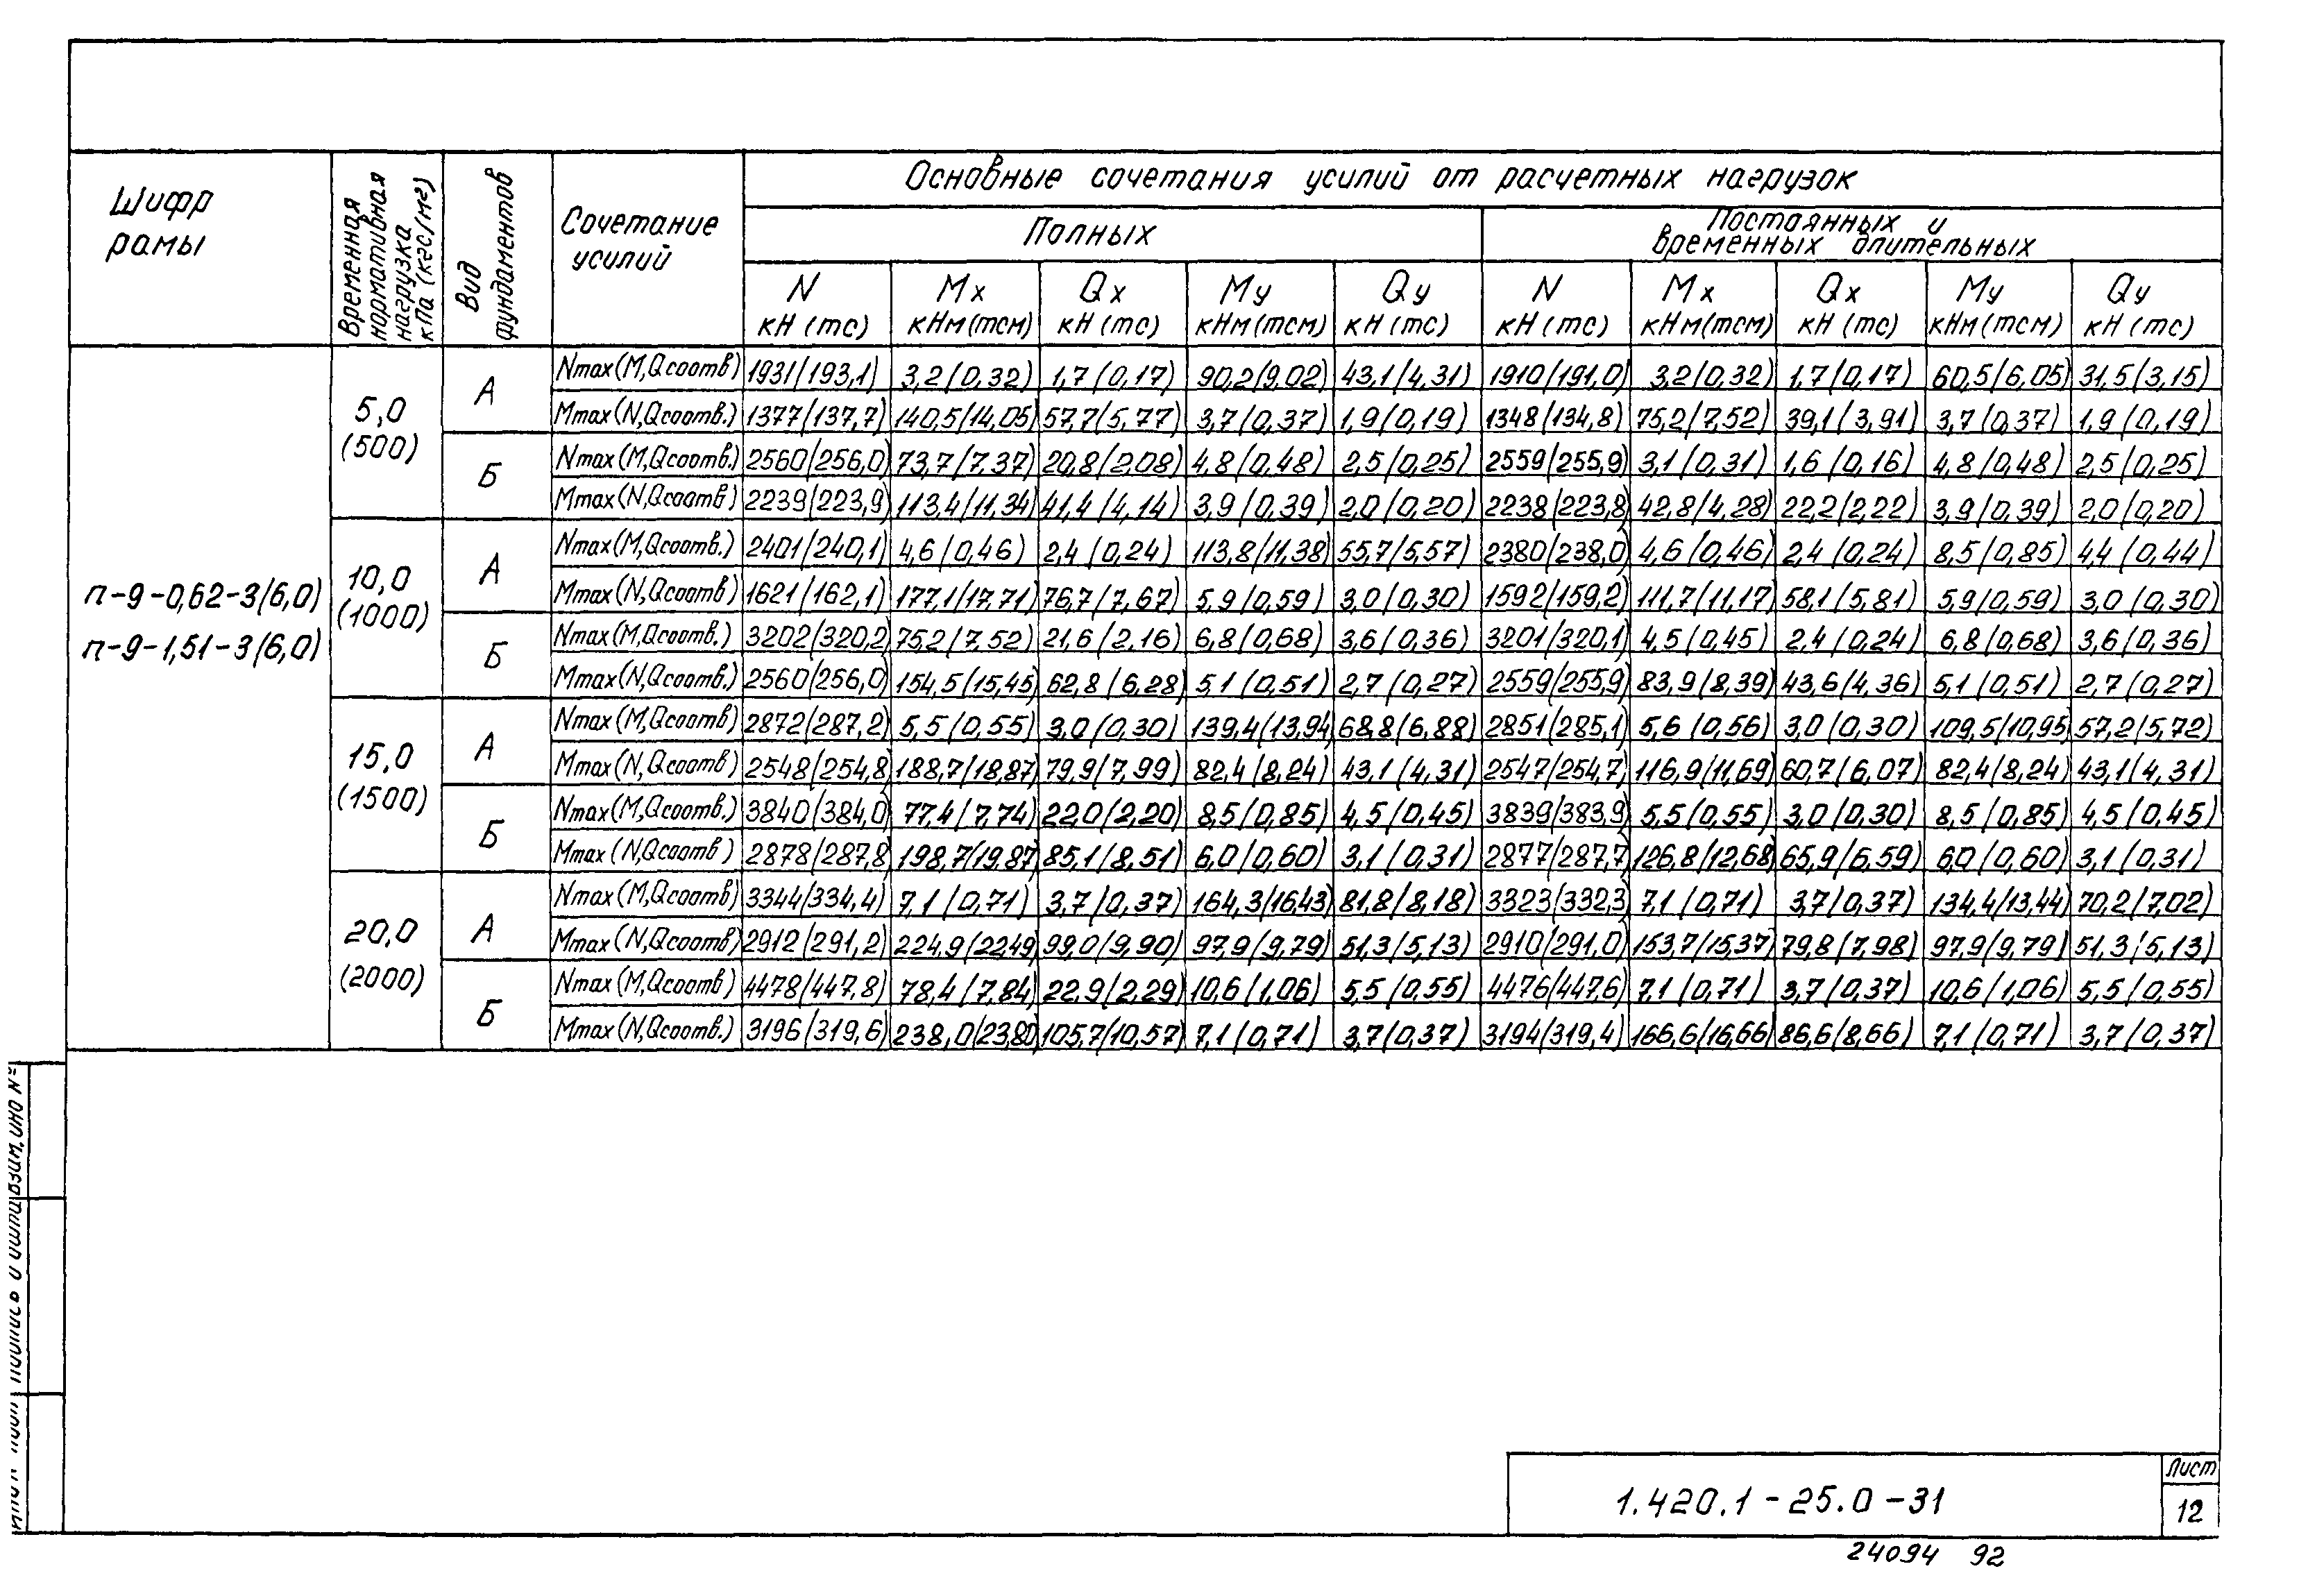 Шифр рамы
Временная нормативная нагрузка кПа (кгс/м²)
Вид фундаментов
Сочетание усилий
Основные сочетания усилий от расчетных нагрузок
Полных
Постоянных и временных длительных
N кН (тс) Mx кНм(тсм) Qx кН (тс) My кНм(тсм) Qy кН (тс) N кН (тс) Mx кНм(тсм) Qx кН (тс) My кНм(тсм) Qy кН (тс)
п-9-0,62-3(6,0)
п-9-1,51-3(6,0)
5,0 (500)
А
Nmax(M,Qсоотв) 1931(193,1) 3,2(0,32) 1,7(0,17) 90,2(9,02) 43,1(4,31) 1910(191,0) 3,2(0,32) 1,7(0,17) 60,5(6,05) 31,5(3,15)
Mmax(N,Qсоотв.) 1377(137,7) 140,5(14,05) 57,7(5,77) 3,7(0,37) 1,9(0,19) 1348(134,8) 75,2(7,52) 39,1(3,91) 3,7(0,37) 1,9(0,19)
Б
Nmax(M,Qсоотв.) 2560(256,0) 73,7(7,37) 20,8(2,08) 4,8(0,48) 2,5(0,25) 2559(255,9) 3,1(0,31) 1,6(0,16) 4,8(0,48) 2,5(0,25)
Mmax(N,Qсоотв) 2239(223,9) 113,4(11,34) 41,4(4,14) 3,9(0,39) 2,0(0,20) 2238(223,8) 42,8(4,28) 22,2(2,22) 3,9(0,39) 2,0(0,20)
10,0 (1000)
А
Nmax(M,Qсоотв.) 2401(240,1) 4,6(0,46) 2,4(0,24) 113,8(11,38) 55,7(5,57) 2380(238,0) 4,6(0,46) 2,4(0,24) 8,5(0,85) 4,4(0,44)
Mmax(N,Qсоотв) 1621(162,1) 177,1(17,71) 76,7(7,67) 5,9(0,59) 3,0(0,30) 1592(159,2) 111,7(11,17) 58,1(5,81) 5,9(0,59) 3,0(0,30)
Б
Nmax(M,Qсоотв.) 3202(320,2) 75,2(7,52) 21,6(2,16) 6,8(0,68) 3,6(0,36) 3201(320,1) 4,5(0,45) 2,4(0,24) 6,8(0,68) 3,6(0,36)
Mmax(N,Qсоотв.) 2560(256,0) 154,5(15,45) 62,8(6,28) 5,1(0,51) 2,7(0,27) 2559(255,9) 83,9(8,39) 43,6(4,36) 5,1(0,51) 2,7(0,27)
15,0 (1500)
А
Nmax(M,Qсоотв) 2872(287,2) 5,5(0,55) 3,0(0,30) 139,4(13,94 68,8(6,88) 2851(285,1) 5,6(0,56) 3,0(0,30) 109,5(10,95 57,2(5,72)
Mmax(N,Qсоотв) 2548(254,8 188,7(18,87) 79,9(7,99) 82,4(8,24) 43,1(4,31) 2547(254,7) 116,9(11,69) 60,7(6,07) 82,4(8,24) 43,1(4,31)
Б
Nmax(M,Qсоотв.) 3840(384,0) 77,4(7,74) 22,0(2,20) 8,5(0,85) 4,5(0,45) 3839(383,9) 5,5(0,55) 3,0(0,30) 8,5(0,85) 4,5(0,45)
Mmax(N,Qсоотв) 2878(287,8 198,7(19,87) 85,1(8,51) 6,0(0,60) 3,1(0,31) 2877(287,7) 126,8(12,68) 65,9(6,59) 6,0(0,60) 3,1(0,31)
20,0 (2000)
А
Nmax(M,Qсоотв) 3344(334,4) 7,1(0,71) 3,7(0,37) 164,3(16,43) 81,8(8,18) 3323(332,3) 7,1(0,71) 3,7(0,37) 134,4(13,44) 70,2(7,02)
Mmax(N,Qсоотв) 2912(291,2) 224,9(22,49) 99,0(9,90) 97,9(9,79) 51,3(5,13) 2910(291,0) 153,7(15,37) 79,8(7,98) 97,9(9,79) 51,3(5,13)
Б
Nmax(M,Qсоотв) 4478(447,8) 78,4(7,84) 22,9(2,29) 10,6(1,06) 5,5(0,55) 4476(447,6) 7,1(0,71) 3,7(0,37) 10,6(1,06) 5,5(0,55)
Mmax(N,Qсоотв.) 3196(319,6) 238,0(23,80) 105,7(10,57) 7,1(0,71) 3,7(0,37) 3194(319,4) 166,6(16,66) 86,6(8,66) 7,1(0,71) 3,7(0,37)
1.420.1-25.0-31
Лист
12
24094 92